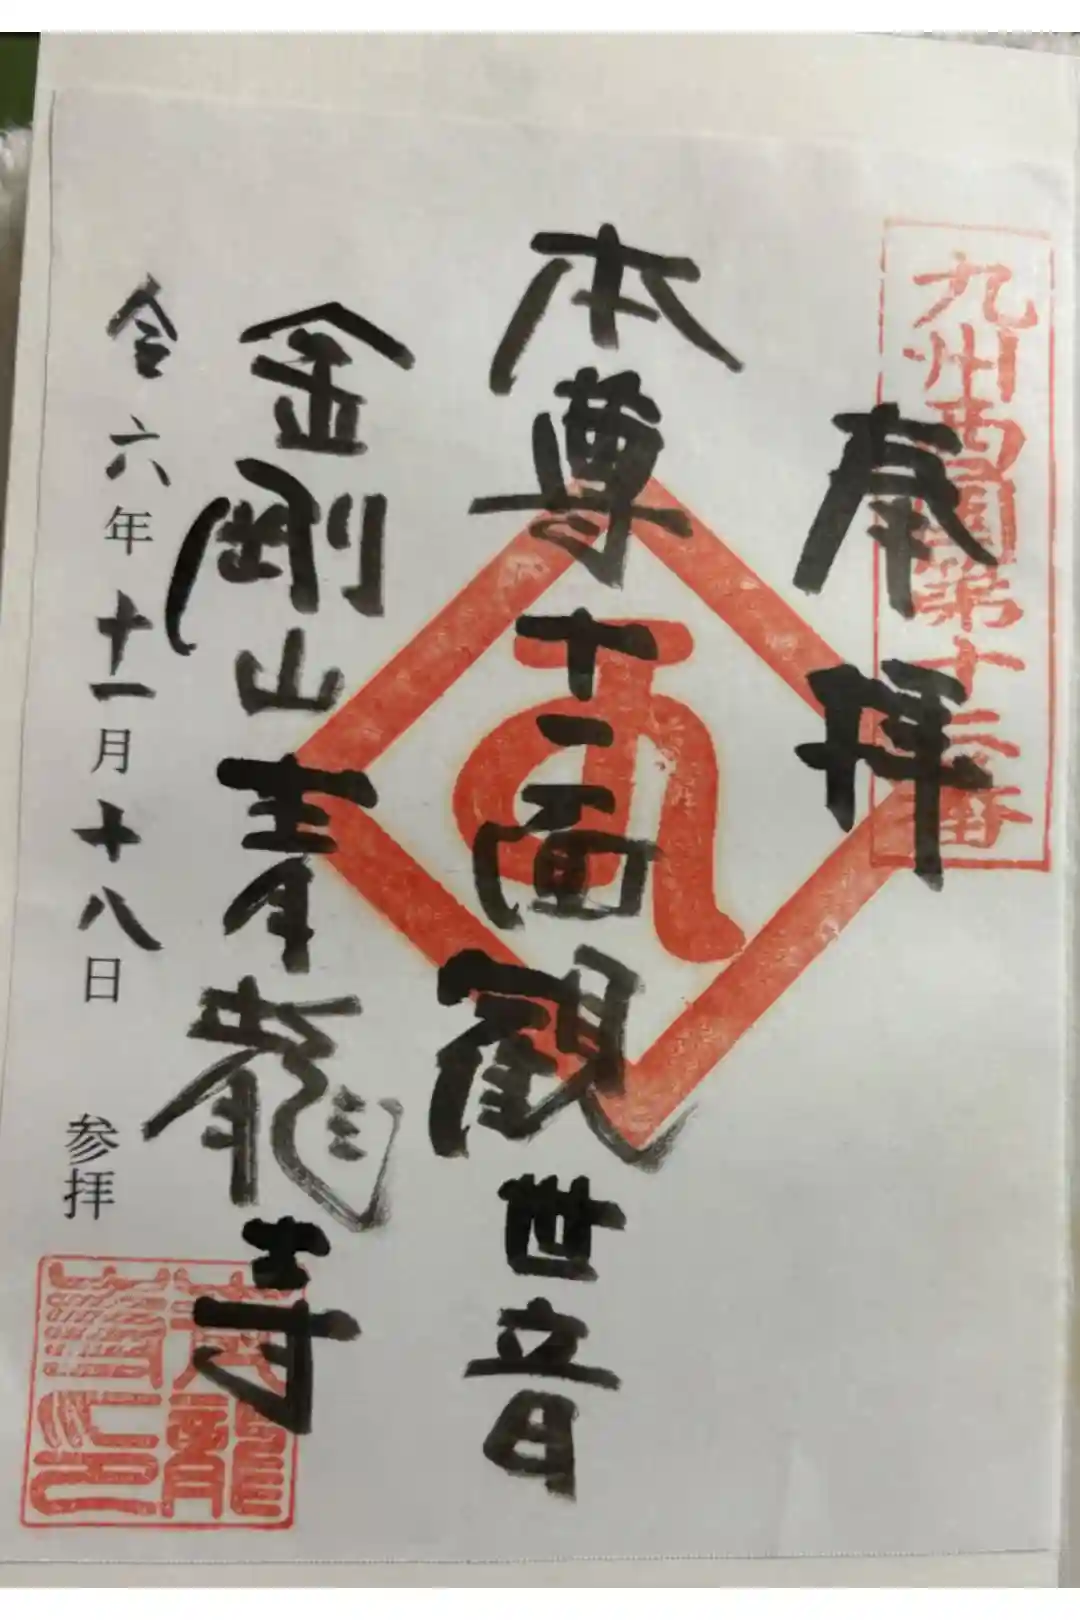 九州西国第十二番
奉拝
本尊十一面観世音
金剛山青龍寺
令六年十一月十八日 参拝
青龍
寺印